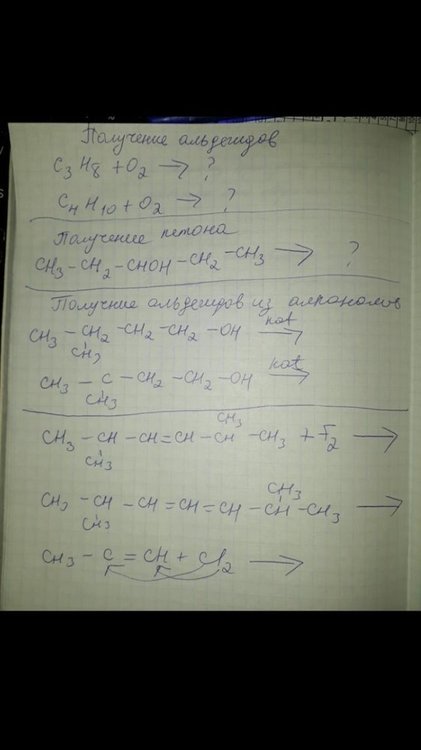 Получение альдегидов
C3H8 + O2 → ?
C4H10 + O2 → ?
Получение кетона
CH3-CH2-CHOH-CH2-CH3 → ?
Получние альдегидов из алканолов
CH3-CH2-CH2-CH2-OH kat→
CH3
CH3-C-CH2-CH2-OH kat→
CH3
CH3
CH3-CH-CH=CH-CH-CH3 + F2 →
CH3
CH3
CH3-CH-CH=CH=CH-CH-CH3 →
CH3
CH3-C=CH + Cl2 →